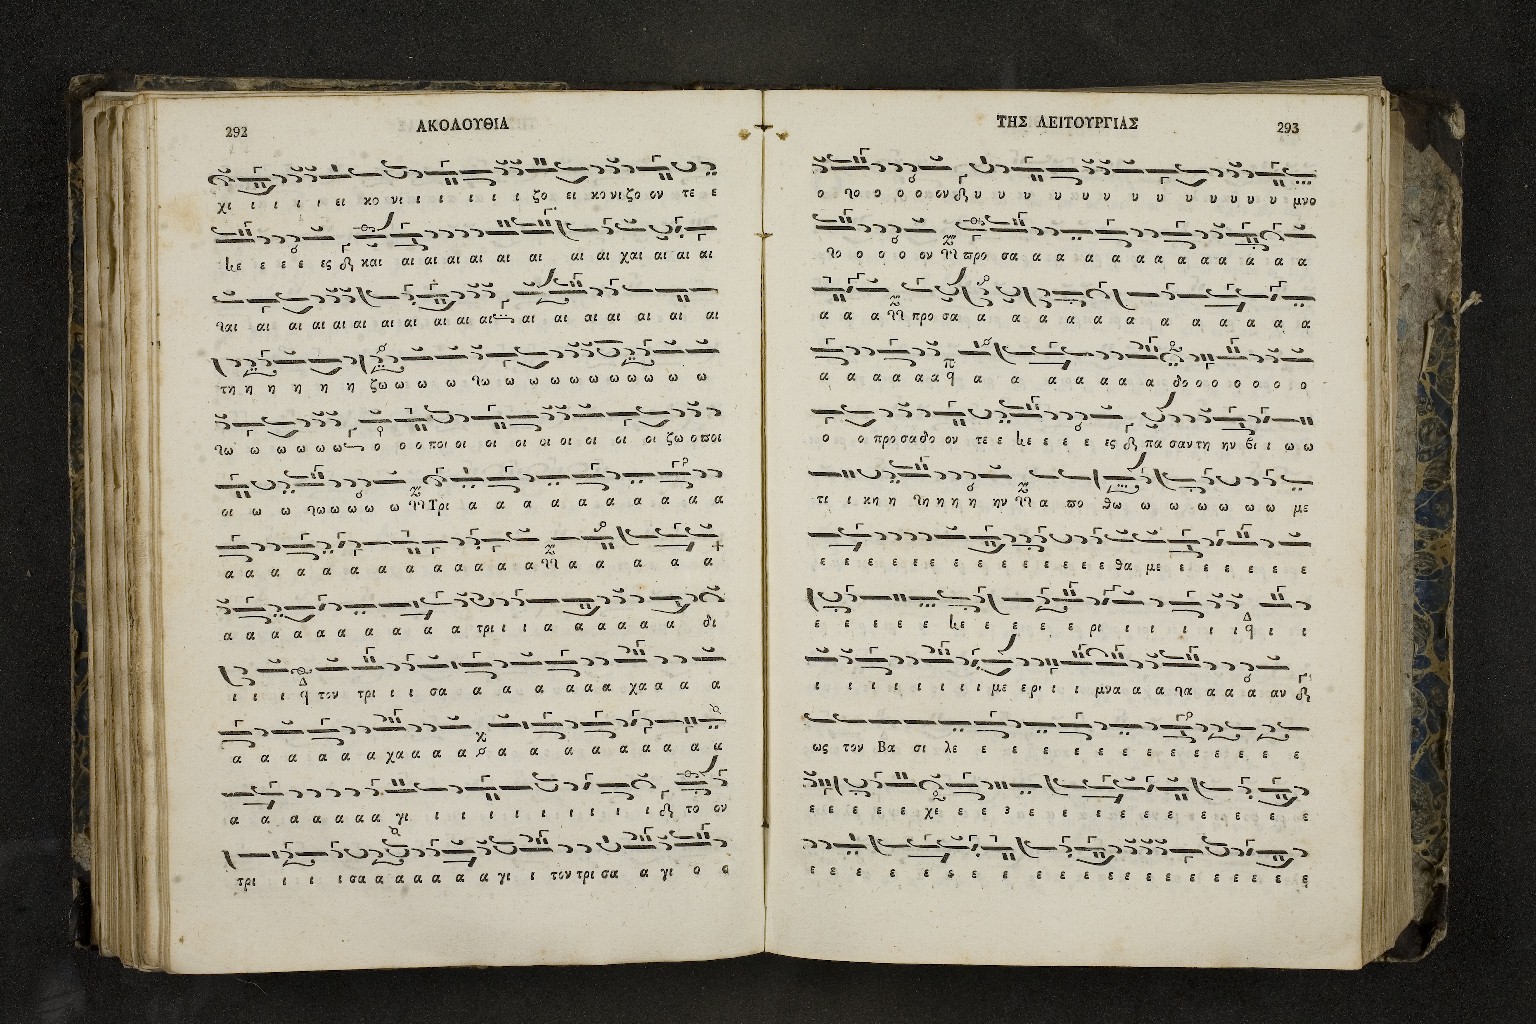 292
ΑΚΟΛΟΥΘΙΑ
χι ι ι ι ι ει κο νι ι ι ι ι ι ζο ει κο νι ζο ον τε ε
κε ε ε ε ες και αι αι αι αι αι αι αι αι χαι αι αι αι
ται αι αι αι αι αι αι αι αι αι αι αι αι αι αι αι αι αι
τη η η η η η ζω ω ω ω τω ω ω ω ω ω ω ω ω ω
τω ω ω ω ω ω ο ο ο ποι οι οι οι οι οι οι οι οι οι ζω ο ποι
οι ω ω τω ω ω ω ω Τρι α α α α α α α α α
α α α α α α α α α α α α α α α α α α α
α α α α α α α α α α τρι ι ι α α α α α α δι
ι ι ι τον τρι ι ι σα α α α α α α χα α α α
α α α α α α χα α α α α α α α α α α α α
α α α α α α α γι ι ι ι ι ι ι ι ι ι το ον
τρι ι ι ι σα α α α α α α α γι ι τον τρι σα α γι ο ο
ΤΗΣ ΛΕΙΤΟΥΡΓΙΑΣ
293
ο το ο ο ο ον υ υ υ υ υ υ υ υ υ υ υ υ υ μνο
το ο ο ο ον προ σα α α α α α α α α α α α α α
α α α προ σα α α α α α α α α α α α
α α α α α α α α α α α α α δο ο ο ο ο ο ο
ο ο προ σα δο ον τε ε κε ε ε ε ες πα σαν τη ην βι ι ω ω
τι ι κη η τη η η η ην α πο θω ω ω ω ω ω ω με
ε ε ε ε ε ε ε ε ε ε ε ε ε θα με ε ε ε ε ε ε
ε ε ε ε ε κε ε ε ε ε ε ρι ι ι ι ι ι ι ι
ι ι ι ι ι ι ι ι με ε ρι ι ι μνα α α τα α α α α αν
ως τον Βα σι λε ε ε ε ε ε ε ε ε ε ε ε ε
ε ε ε ε ε χε ε ε ε ε ε ε ε ε ε ε ε ε ε ε
ε ε ε ε ε ε ε ε ε ε ε ε ε ε ε ε ε ε ε